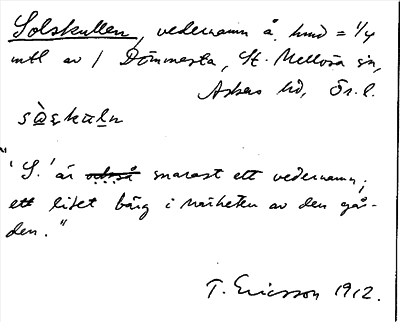 Solskullen, vedernamn å hmd = 1/4
mtl av 1 Dömmesta, St. Mellösa sn,
Askers hd, Ör. l.
sὰε̨kαl̠n
"'S.' är också snarast ett vedernamn;
ett litet bärg i närheten av den går-
den."
T. Ericsson 1912.